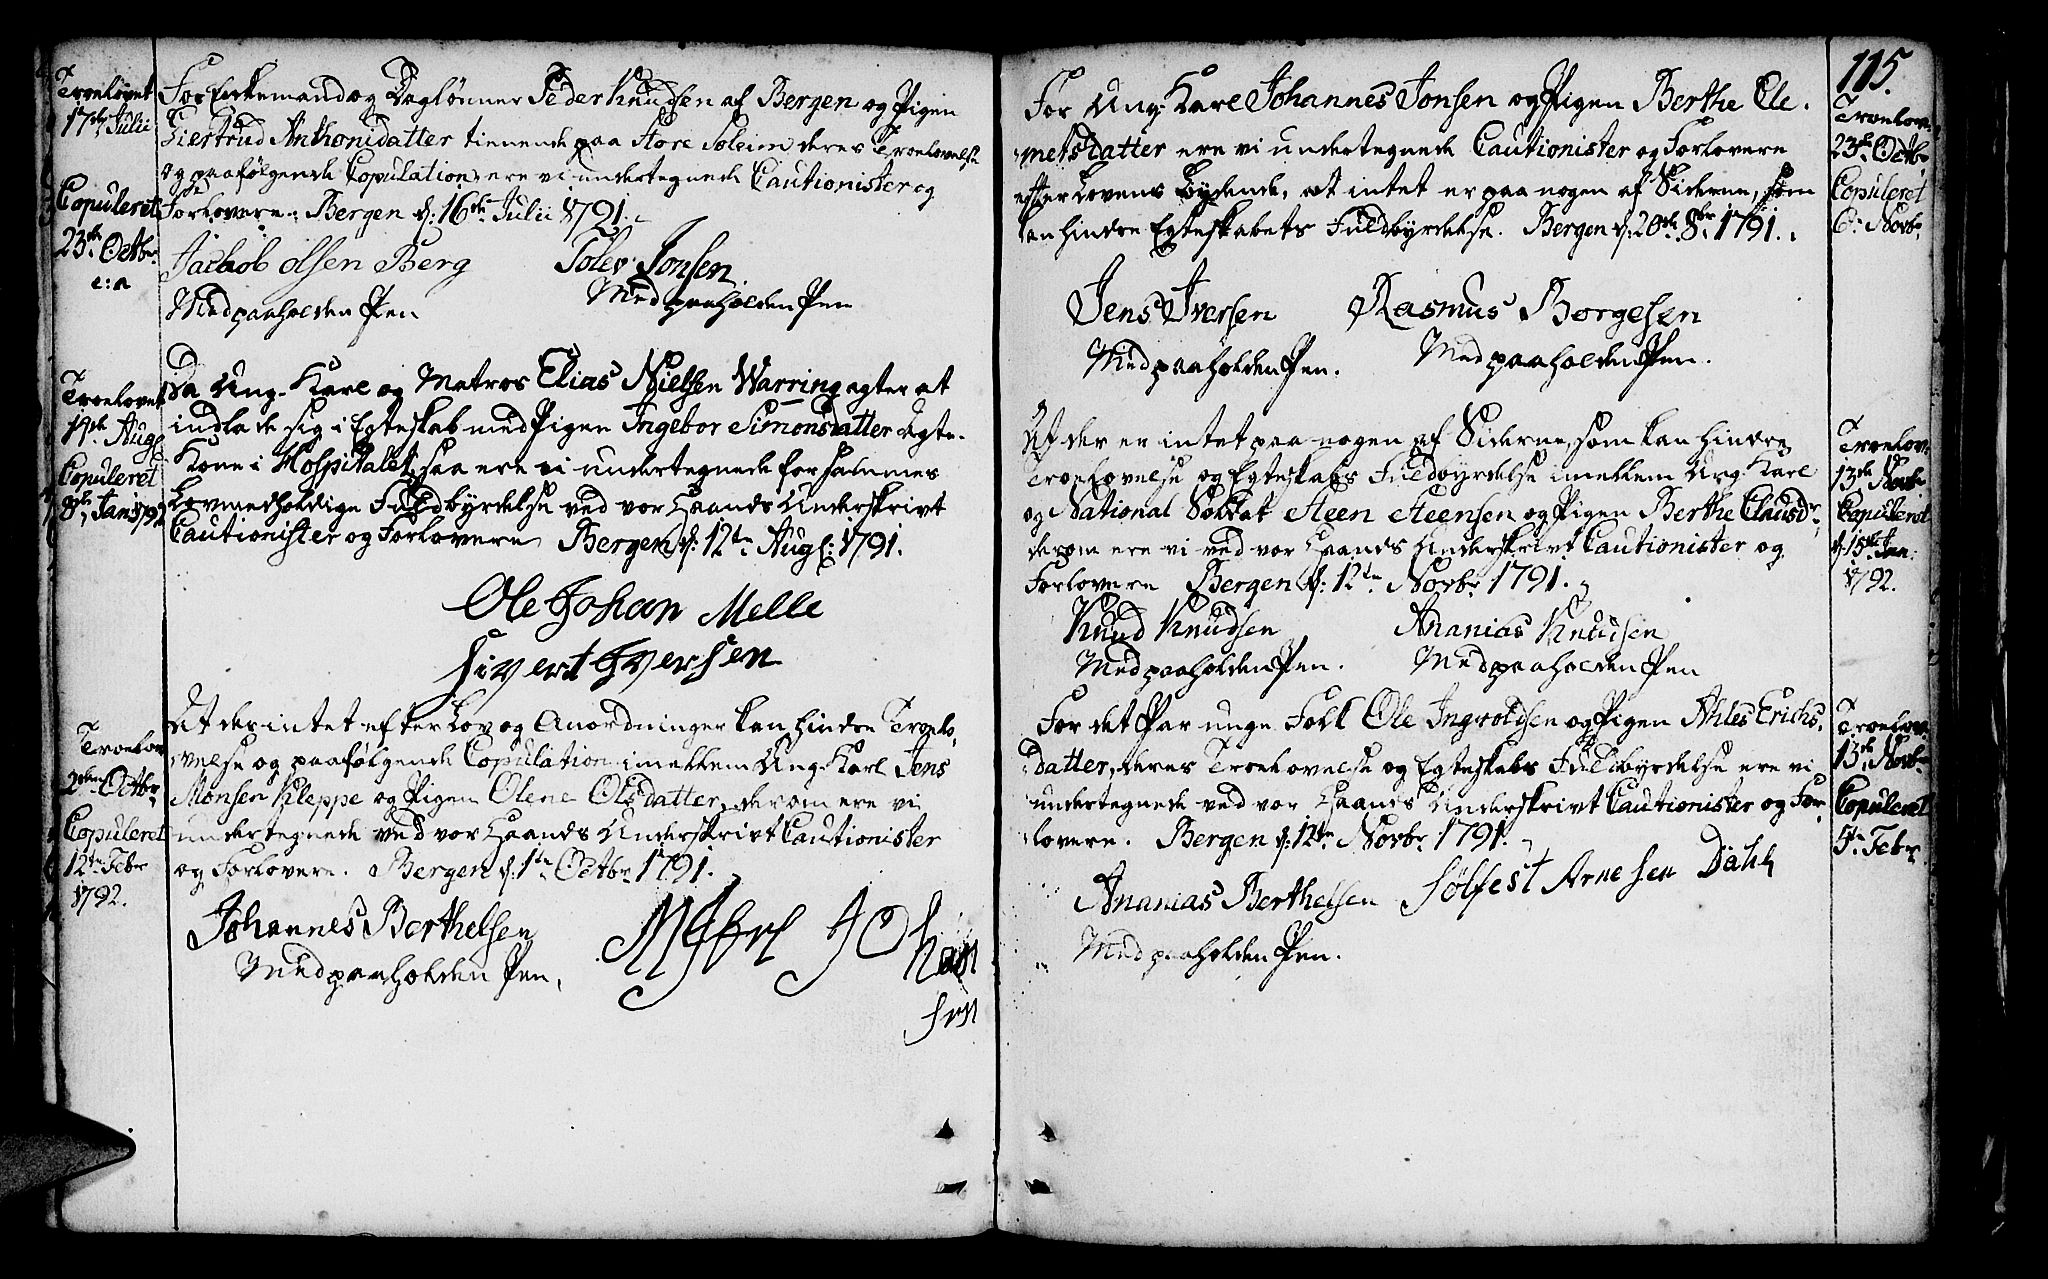 Troelovet
17de Julii
Copuleret
23de Octbr.
e: a
For Enkemand og Daglønner Peder Knudsen af Bergen og Pigen
Giertrud Anthonidatter tienende paa Store Soleim deres Troelovelse
og paafølgende Copulation, ere vi undertegnede Cautionister og
Forlovere. Bergen d: 16de Julii 1791.
Jacob olsen Berg
Tolev Jonsen
Med paaholden Pen
Med paaholden Pen
Troelovet
19de Aug:
Copuleret
8de Jan 1792
Da Ung-Karl og Matros Elias Nielsen Warring agter at
indlade sig i Egteskab med Pigen Ingebor Simonsdatter Vgte-
Kone i Hospitalet, saa ere vi undertegnede for sammes
Lovmedholdige Fuldbyrdelse ved vor Haands Underskrivt
Cautionister og Forlovere Bergen d: 12te Aug: 1791.
Ole Johan Melle
Sivert Iversen
Troelov
2den Octbr.
Copuleret
12te Febr
1792.
At der intet efter Lov og Anordninger kan hindre Troelo-
velse og paafølgende Copulation imellem Ung-Karl Jens
Monsen Kleppe og Pigen Olene Olsdatter, derom ere vi
undertegnede ved vor Haands Underskrivt Cautionister
og Forlovere. Bergen d: 1te Octbr. 1791.
Johannes Berthelsen
Med paaholden Pen,
Johan
sen
115.
For Ung-Karl Johannes Jonsen og Pigen Berthe Cle-
metsdatter ere vi undertegnede Cautionister og Forlovere
efter Lovens bydende, at intet er paa nogen af Siderne, som
kan hindre Egteskabets Fuldbyrdelse. Bergen d: 20de 8br. 1791.
Jens Iversen
Rasmus Børgesen
Med paaholden Pen.
Med paaholden Pen.
Troelov.
23de Octbr
Copuleret
6te Novbr.
At der er intet paa nogen af Siderne, som kan hindre
Troelovelse og Egteskabs Fuldbyrdelse imellem Ung Karl
og National Soldat Steen Steensen og Pigen Berthe Clausdr.
derom ere vi ved vor Haands Underskrivt Cautionister og
Forlovere Bergen d: 12te Novbr. 1791.
Knud Knudsen
Ananias Knudsen
Med paaholden Pen.
Med paaholden Pen
Troelov.
13de Novbr.
Copuleret
d: 15de Jan:
1792.
For det Par unge Folk Ole Ingvoldsen og Pigen Ahles Erichs-
datter, deres Troelovelse og Egteskabs Fuldbyrdelse ere vi
undertegnede ved vor Haands Underskrivt Cautionister og For-
lovere. Bergen d: 12te Novbr. 1791.
Ananias Berthelsen
Sølfest Arnesen Dahl
Med paaholden Pen.
Troelov.
13de Novbr
Copuleret
5te Febr.